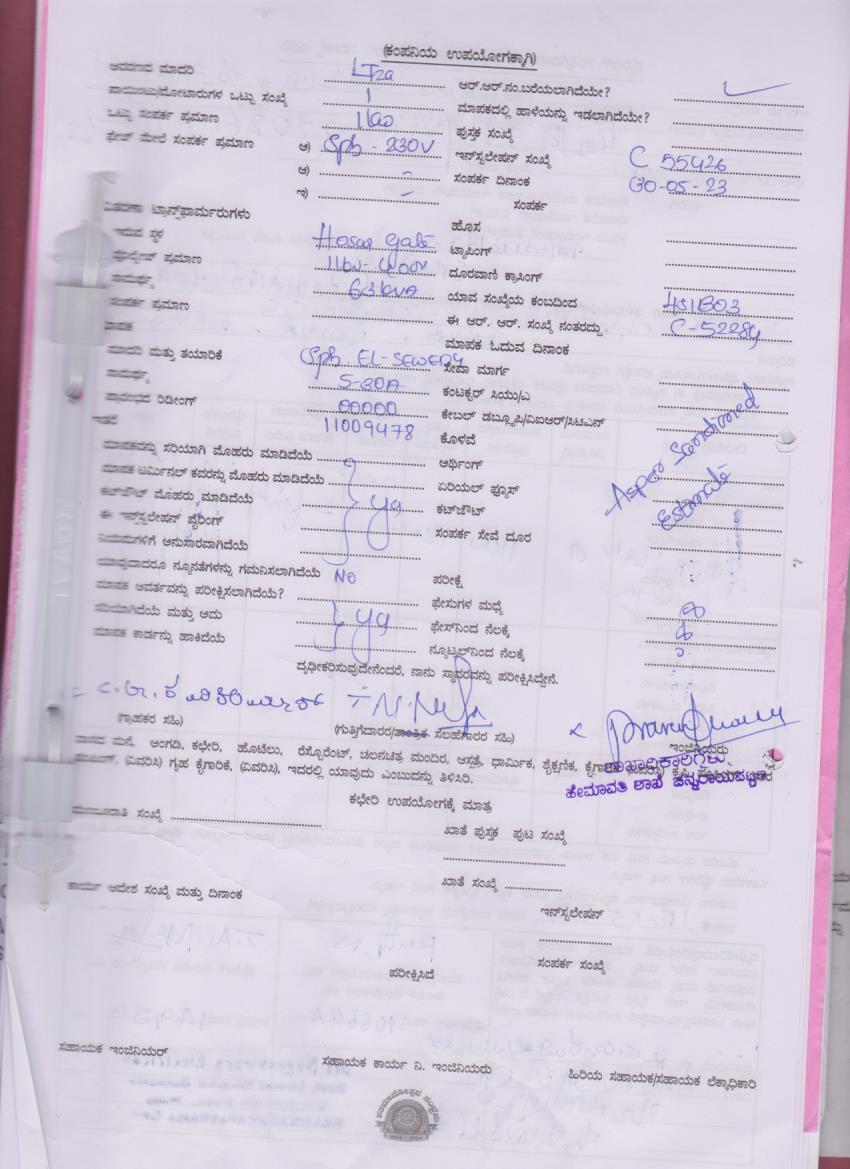 (ಕಂಪನಿಯ ಉಪಯೋಗಕ್ಕಾಗಿ)
ಆವರಣದ ಮಾದರಿ LT2a ಆರ್.ಆರ್.ನಂ.ಬರೆಯಲಾಗಿದೆಯೇ?
ಪಾಯಿಂಟು/ಮೋಟಾರುಗಳ ಒಟ್ಟು ಸಂಖ್ಯೆ 1 ಮಾಪಕದಲ್ಲಿ ಹಾಳೆಯನ್ನು ಇಡಲಾಗಿದೆಯೇ?
ಒಟ್ಟು ಸಂಪರ್ಕ ಪ್ರಮಾಣ ಪುಸ್ತಕ ಸಂಖ್ಯೆ
ಫೇಜ್ ಮೇಲೆ ಸಂಪರ್ಕ ಪ್ರಮಾಣ ಅ) Sph - 230V ಇನ್‌ಸ್ಟಲೇಷನ್ ಸಂಖ್ಯೆ C 55426
ಆ) - ಸಂಪರ್ಕ ದಿನಾಂಕ 30-05-23
ಇ) - ಸಂಪರ್ಕ
ವಿತರಣಾ ಟ್ರಾನ್ಸ್‌ಫಾರ್ಮರುಗಳು ಹೊಸ
ಇರುವ ಸ್ಥಳ Hosur gate ಟ್ಯಾಪಿಂಗ್
ವೋಲ್ಟೇಜ್ ಪ್ರಮಾಣ ದೂರವಾಣಿ ಕ್ರಾಸಿಂಗ್
ಸಾಮರ್ಥ್ಯ 63 KVA ಯಾವ ಸಂಖ್ಯೆಯ ಕಂಬದಿಂದ
ಸಂಪರ್ಕ ಪ್ರಮಾಣ ಈ ಆರ್. ಆರ್. ಸಂಖ್ಯೆ ನಂತರದ್ದು C-52284
ಮಾಪಕ ಮಾಪಕ ಓದುವ ದಿನಾಂಕ
ಮಾದರಿ ಮತ್ತು ತಯಾರಿಕೆ Sph. EL-SEWERY ಸೇವಾ ಮಾರ್ಗ
ಸಾಮರ್ಥ್ಯ 5-20A ಕಂಟಕ್ಟರ್ ಸಿಯು/ಎ
ಪ್ರಾರಂಭದ ರಿಡೀಂಗ್ 00000 ಕೇಬಲ್ ಡಬ್ಲ್ಯೂಪಿ/ವಿಐಆರ್/ಸಿಟಿಎನ್
ಇತರೆ 11009478 ಕೊಳವೆ
ಮಾಪಕವನ್ನು ಸರಿಯಾಗಿ ಮೊಹರು ಮಾಡಿದೆಯೆ ಅರ್ಥಿಂಗ್
ಮಾಪಕ ಟರ್ಮಿನಲ್ ಕವರನ್ನು ಮೊಹರು ಮಾಡಿದೆಯೆ ಏರಿಯಲ್ ಫ್ಯೂಸ್
ಕಟ್‌ಔಟ್ ಮೊಹರು ಮಾಡಿದೆಯೆ ಕಟ್‌ಔಟ್
ಈ ಇನ್‌ಸ್ಟಲೇಷನ್ ವೈರಿಂಗ್ ಸಂಪರ್ಕ ಸೇವೆ ದೂರ
As per Sanctioned
Estimate
ನಿಯಮಗಳಿಗೆ ಅನುಸಾರವಾಗಿದೆಯೆ
ಯಾವುದಾದರೂ ನ್ಯೂನತೆಗಳನ್ನು ಗಮನಿಸಲಾಗಿದೆಯೆ NO ಪರೀಕ್ಷೆ
ಮಾಪಕ ಆವರ್ತವನ್ನು ಪರೀಕ್ಷಿಸಲಾಗಿದೆಯೆ? ಫೇಸುಗಳ ಮಧ್ಯೆ
ಸರಿಯಾಗಿದೆಯೆ ಮತ್ತು ಅದು ಫೇಸ್‌ನಿಂದ ನೆಲಕ್ಕೆ
ಮಾಪಕ ಕಾರ್ಡನ್ನು ಹಾಕಿದೆಯೆ ನ್ಯೂಟ್ರಲ್‌ನಿಂದ ನೆಲಕ್ಕೆ
ದೃಢೀಕರಿಸುವುದೇನೆಂದರೆ, ನಾನು ಸ್ಥಾವರವನ್ನು ಪರೀಕ್ಷಿಸಿದ್ದೇನೆ.
(ಗ್ರಾಹಕರ ಸಹಿ) (ಗುತ್ತಿಗೆದಾರರ/ತಾಂತ್ರಿಕ ಸಲಹೆಗಾರರ ಸಹಿ) ಇಂಜಿನಿಯರು
ವಾಸದ ಮನೆ, ಅಂಗಡಿ, ಕಛೇರಿ, ಹೊಟೆಲು, ರೆಸ್ಟೋರೆಂಟ್, ಚಲನಚಿತ್ರ ಮಂದಿರ, ಆಸ್ಪತ್ರೆ, ಧಾರ್ಮಿಕ, ಶೈಕ್ಷಣಿಕ,
(ವಿವರಿಸಿ) ಗೃಹ ಕೈಗಾರಿಕೆ, (ವಿವರಿಸಿ), ಇದರಲ್ಲಿ ಯಾವುದು ಎಂಬುದನ್ನು ತಿಳಿಸಿರಿ.
ಶಾಖಾಧಿಕಾರಿಗಳು.
ಹೇಮಾವತಿ ಶಾಖೆ ಚನ್ನರಾಯಪಟ್ಟಣ
ಕಛೇರಿ ಉಪಯೋಗಕ್ಕೆ ಮಾತ್ರ
ಮಂಜೂರಾತಿ ಸಂಖ್ಯೆ ಖಾತೆ ಪುಸ್ತಕ ಪುಟ ಸಂಖ್ಯೆ
ಕಾರ್ಯ ಆದೇಶ ಸಂಖ್ಯೆ ಮತ್ತು ದಿನಾಂಕ ಖಾತೆ ಸಂಖ್ಯೆ
ಇನ್‌ಸ್ಟಲೇಷನ್
ಪರೀಕ್ಷಿಸಿದೆ ಸಂಪರ್ಕ ಸಂಖ್ಯೆ
ಸಹಾಯಕ ಇಂಜಿನಿಯರ್ ಸಹಾಯಕ ಕಾರ್ಯ ನಿ. ಇಂಜಿನಿಯರು ಹಿರಿಯ ಸಹಾಯಕ/ಸಹಾಯಕ ಲೆಕ್ಕಾಧಿಕಾರಿ